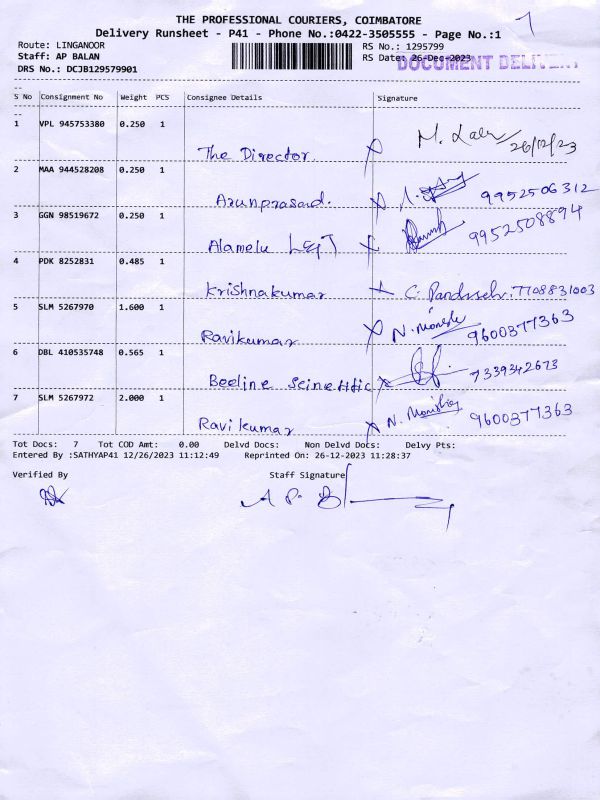 THE PROFESSIONAL COURIERS, COIMBATORE
7
Delivery Runsheet - P41 - Phone No.:0422-3505555 - Page No.:1
Route: LINGANOOR
RS No.: 1295799
Staff: AP BALAN
RS Date: 26-Dec-2023
DOCUMENT DELIVERY
DRS No.: DCJB129579901
S No Consignment No Weight PCS Consignee Details Signature
1 VPL 945753380 0.250 1
The Director 26/12/23
2 MAA 944528208 0.250 1
Arunprasad. 9952506312
3 GGN 98519672 0.250 1
Alamelu L&T 9952508894
4 PDK 8252831 0.485 1
Krishnakumar 7708831003
5 SLM 5267970 1.600 1
Ravikumar 9600377363
6 DBL 410535748 0.565 1
Beeline Scinetific 7339342673
7 SLM 5267972 2.000 1
Ravikumar 9600377363
Tot Docs: 7 Tot COD Amt: 0.00 Delvd Docs: Non Delvd Docs: Delvy Pts:
Entered By :SATHYAP41 12/26/2023 11:12:49 Reprinted On: 26-12-2023 11:28:37
Verified By Staff Signature